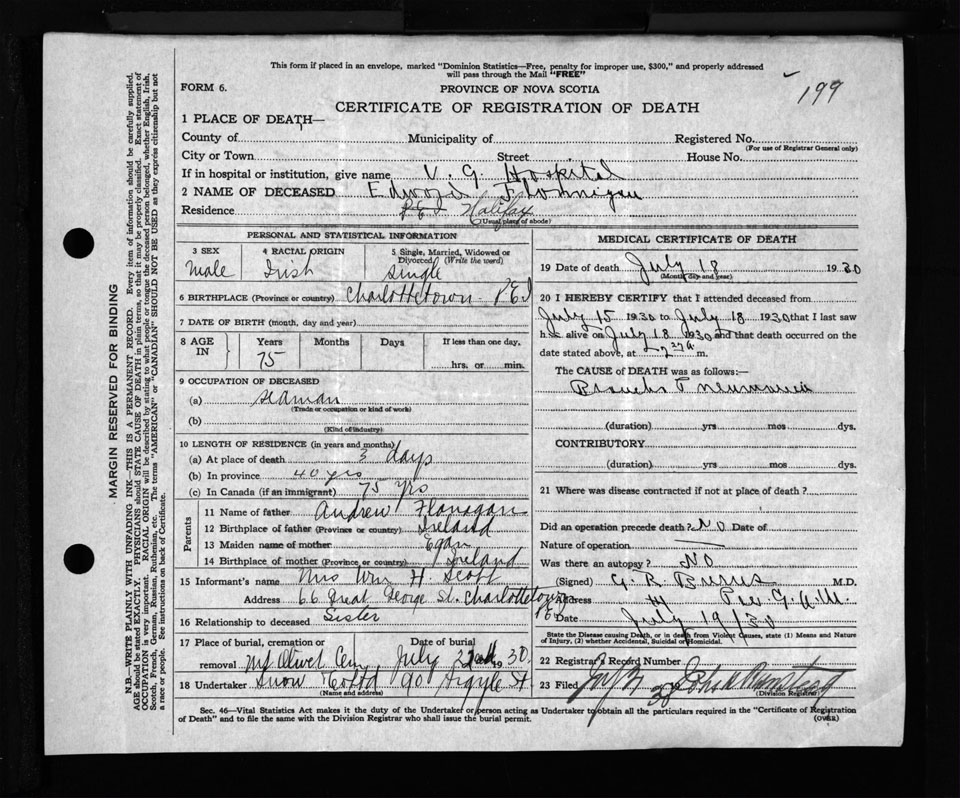 This form if placed in an envelope, marked "Dominion Statistics—Free, penalty for improper use, $300," and properly addressed
will pass through the Mail "FREE"
199
FORM 6. PROVINCE OF NOVA SCOTIA
CERTIFICATE OF REGISTRATION OF DEATH
1 PLACE OF DEATH—
County of Municipality of Registered No.
(For use of Registrar General only)
City or Town Street House No.
If in hospital or institution, give name V. G. Hospital
2 NAME OF DECEASED Edward
Residence P.E.I. Halifax
(Usual place of abode)
PERSONAL AND STATISTICAL INFORMATION
3 SEX 4 RACIAL ORIGIN 5 Single, Married, Widowed or
Divorced (Write the word)
Male Irish Single
6 BIRTHPLACE (Province or country) Charlottetown P.E.I
7 DATE OF BIRTH (month, day and year)
8 AGE IN Years Months Days If less than one day,
75 hrs. or min.
9 OCCUPATION OF DECEASED
(a) Seaman
(Trade or occupation or kind of work)
(b)
(Kind of industry)
10 LENGTH OF RESIDENCE (in years and months)
(a) At place of death 3 days
(b) In province 40 yrs
(c) In Canada (if an immigrant) 75 yrs
Parents
11 Name of father Andrew Flanagan
12 Birthplace of father (Province or country) Ireland
13 Maiden name of mother Egan
14 Birthplace of mother (Province or country) Ireland
15 Informant's name Mrs Wm H. Scott
Address 66 Great George St. Charlottetown P.E.I
16 Relationship to deceased Sister
17 Place of burial, cremation or Date of burial
removal Mt Olivet Cem July 1930
18 Undertaker Snow & Co Ltd 90 Argyle St
(Name and address)
MEDICAL CERTIFICATE OF DEATH
19 Date of death July 18 1930
(Month, day and year)
20 I HEREBY CERTIFY that I attended deceased from
July 15 1930 to July 18 1930 that I last saw
h alive on July 18 1930 and that death occurred on the
date stated above, at m.
The CAUSE OF DEATH was as follows:—
Broncho Pneumonia
(duration) yrs mos dys.
CONTRIBUTORY
(duration) yrs mos dys.
21 Where was disease contracted if not at place of death?
Did an operation precede death? NO Date of
Nature of operation —
Was there an autopsy? NO
(Signed) G. R. Burns M.D.
Address
Date July 19/30
State the Disease causing Death, or in death from Violent Causes, state (1) Means and Nature
of Injury, (2) whether Accidental, Suicidal or Homicidal.
22 Registrar's Record Number
23 Filed
(Division Registrar)
Sec. 46—Vital Statistics Act makes it the duty of the Undertaker or person acting as Undertaker to obtain all the particulars required in the "Certificate of Registration
of Death" and to file the same with the Division Registrar who shall issue the burial permit. (OVER)
MARGIN RESERVED FOR BINDING
N.B.—WRITE PLAINLY WITH UNFADING INK—THIS IS A PERMANENT RECORD. Every item of information should be carefully supplied.
AGE should be stated EXACTLY. PHYSICIANS should STATE CAUSE OF DEATH in plain terms, so that it may be properly classified. Exact statement of
OCCUPATION is very important. RACIAL ORIGIN will be described by stating to what people or tongue the deceased person belonged, whether English, Irish,
Scotch, French, German, Russian, Ruthenian, etc. The terms "AMERICAN" or "CANADIAN" SHOULD NOT BE USED as they express citizenship but not
a race or people. See instructions on back of Certificate.